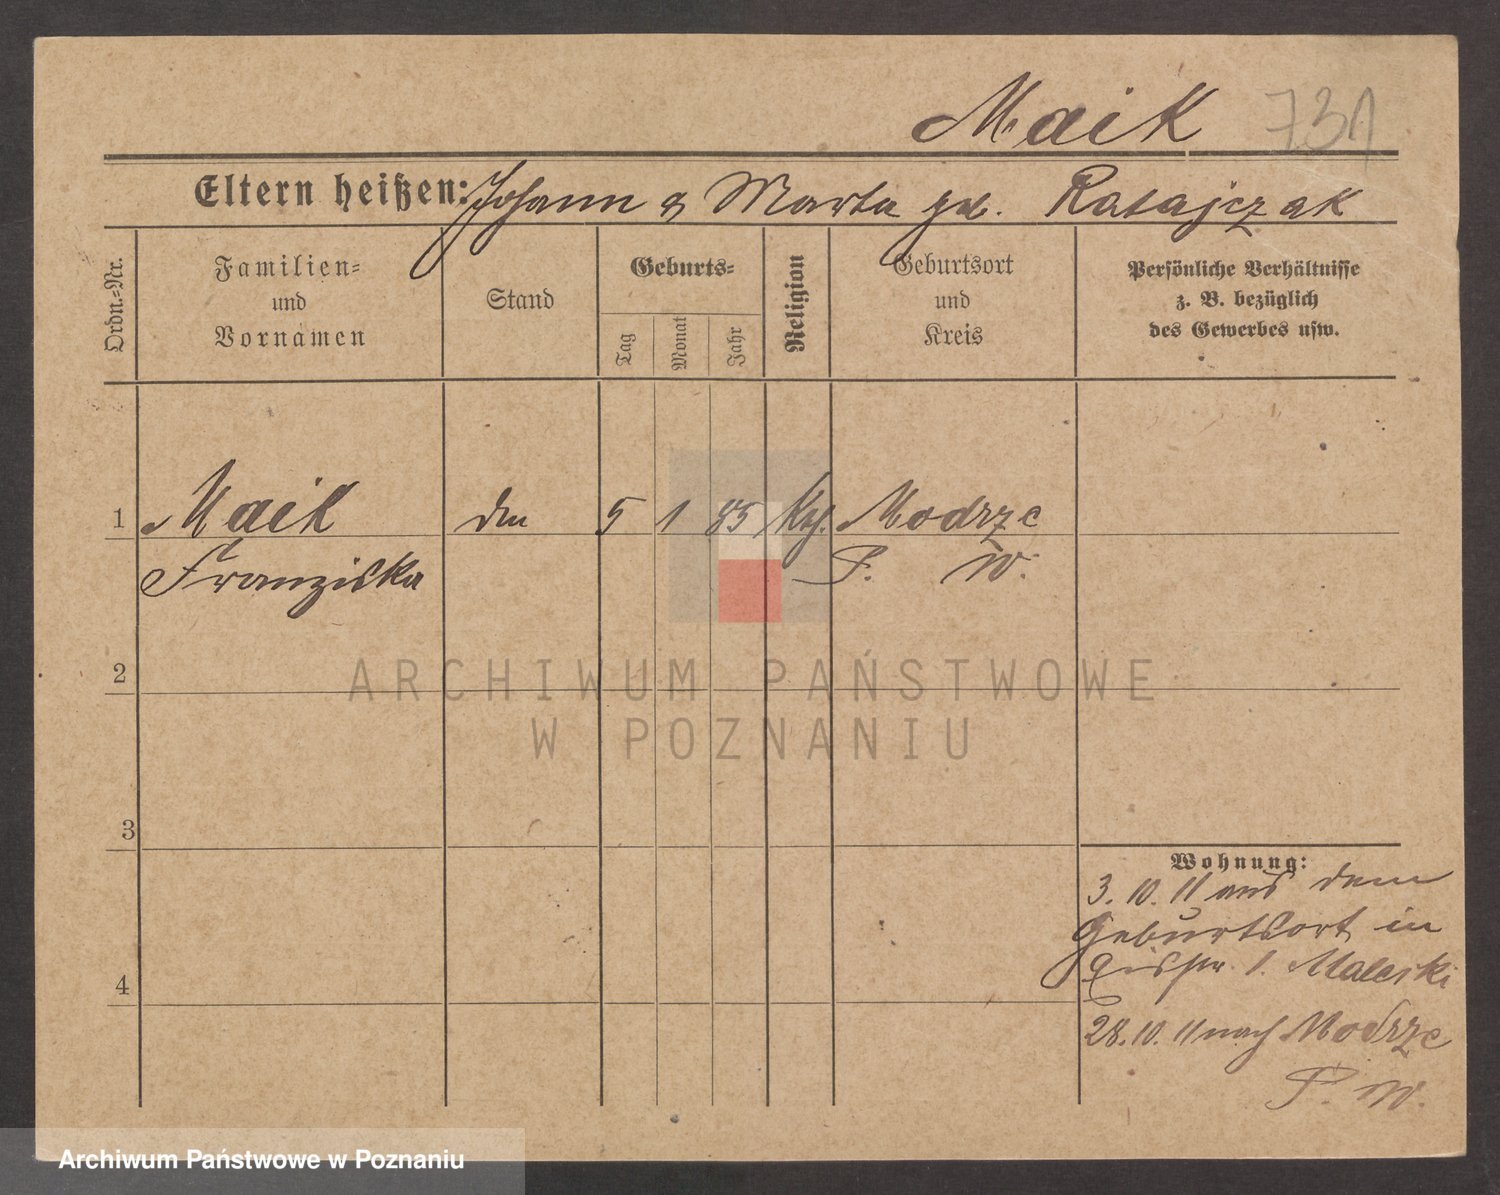 Maik 731
Eltern heißen: Johann & Marta geb. Ratajczak
Ordn.=Nr.
Familien=
und
Vornamen
Stand
Geburts=
Tag
Monat
Jahr
Religion
Geburtsort
und
Kreis
Persönliche Verhältnisse
z. B. bezüglich
des Gewerbes usw.
1 Maik 5 1 85 Modrze
Franziska P. W.
2
ARCHIWUM PAŃSTWOWE
W POZNANIU
3
Wohnung:
3. 10. 11 aus dem
Geburtsort in
1. Maleski
4
28. 10. 11 nach Modrze
P. W.
Archiwum Państwowe w Poznaniu